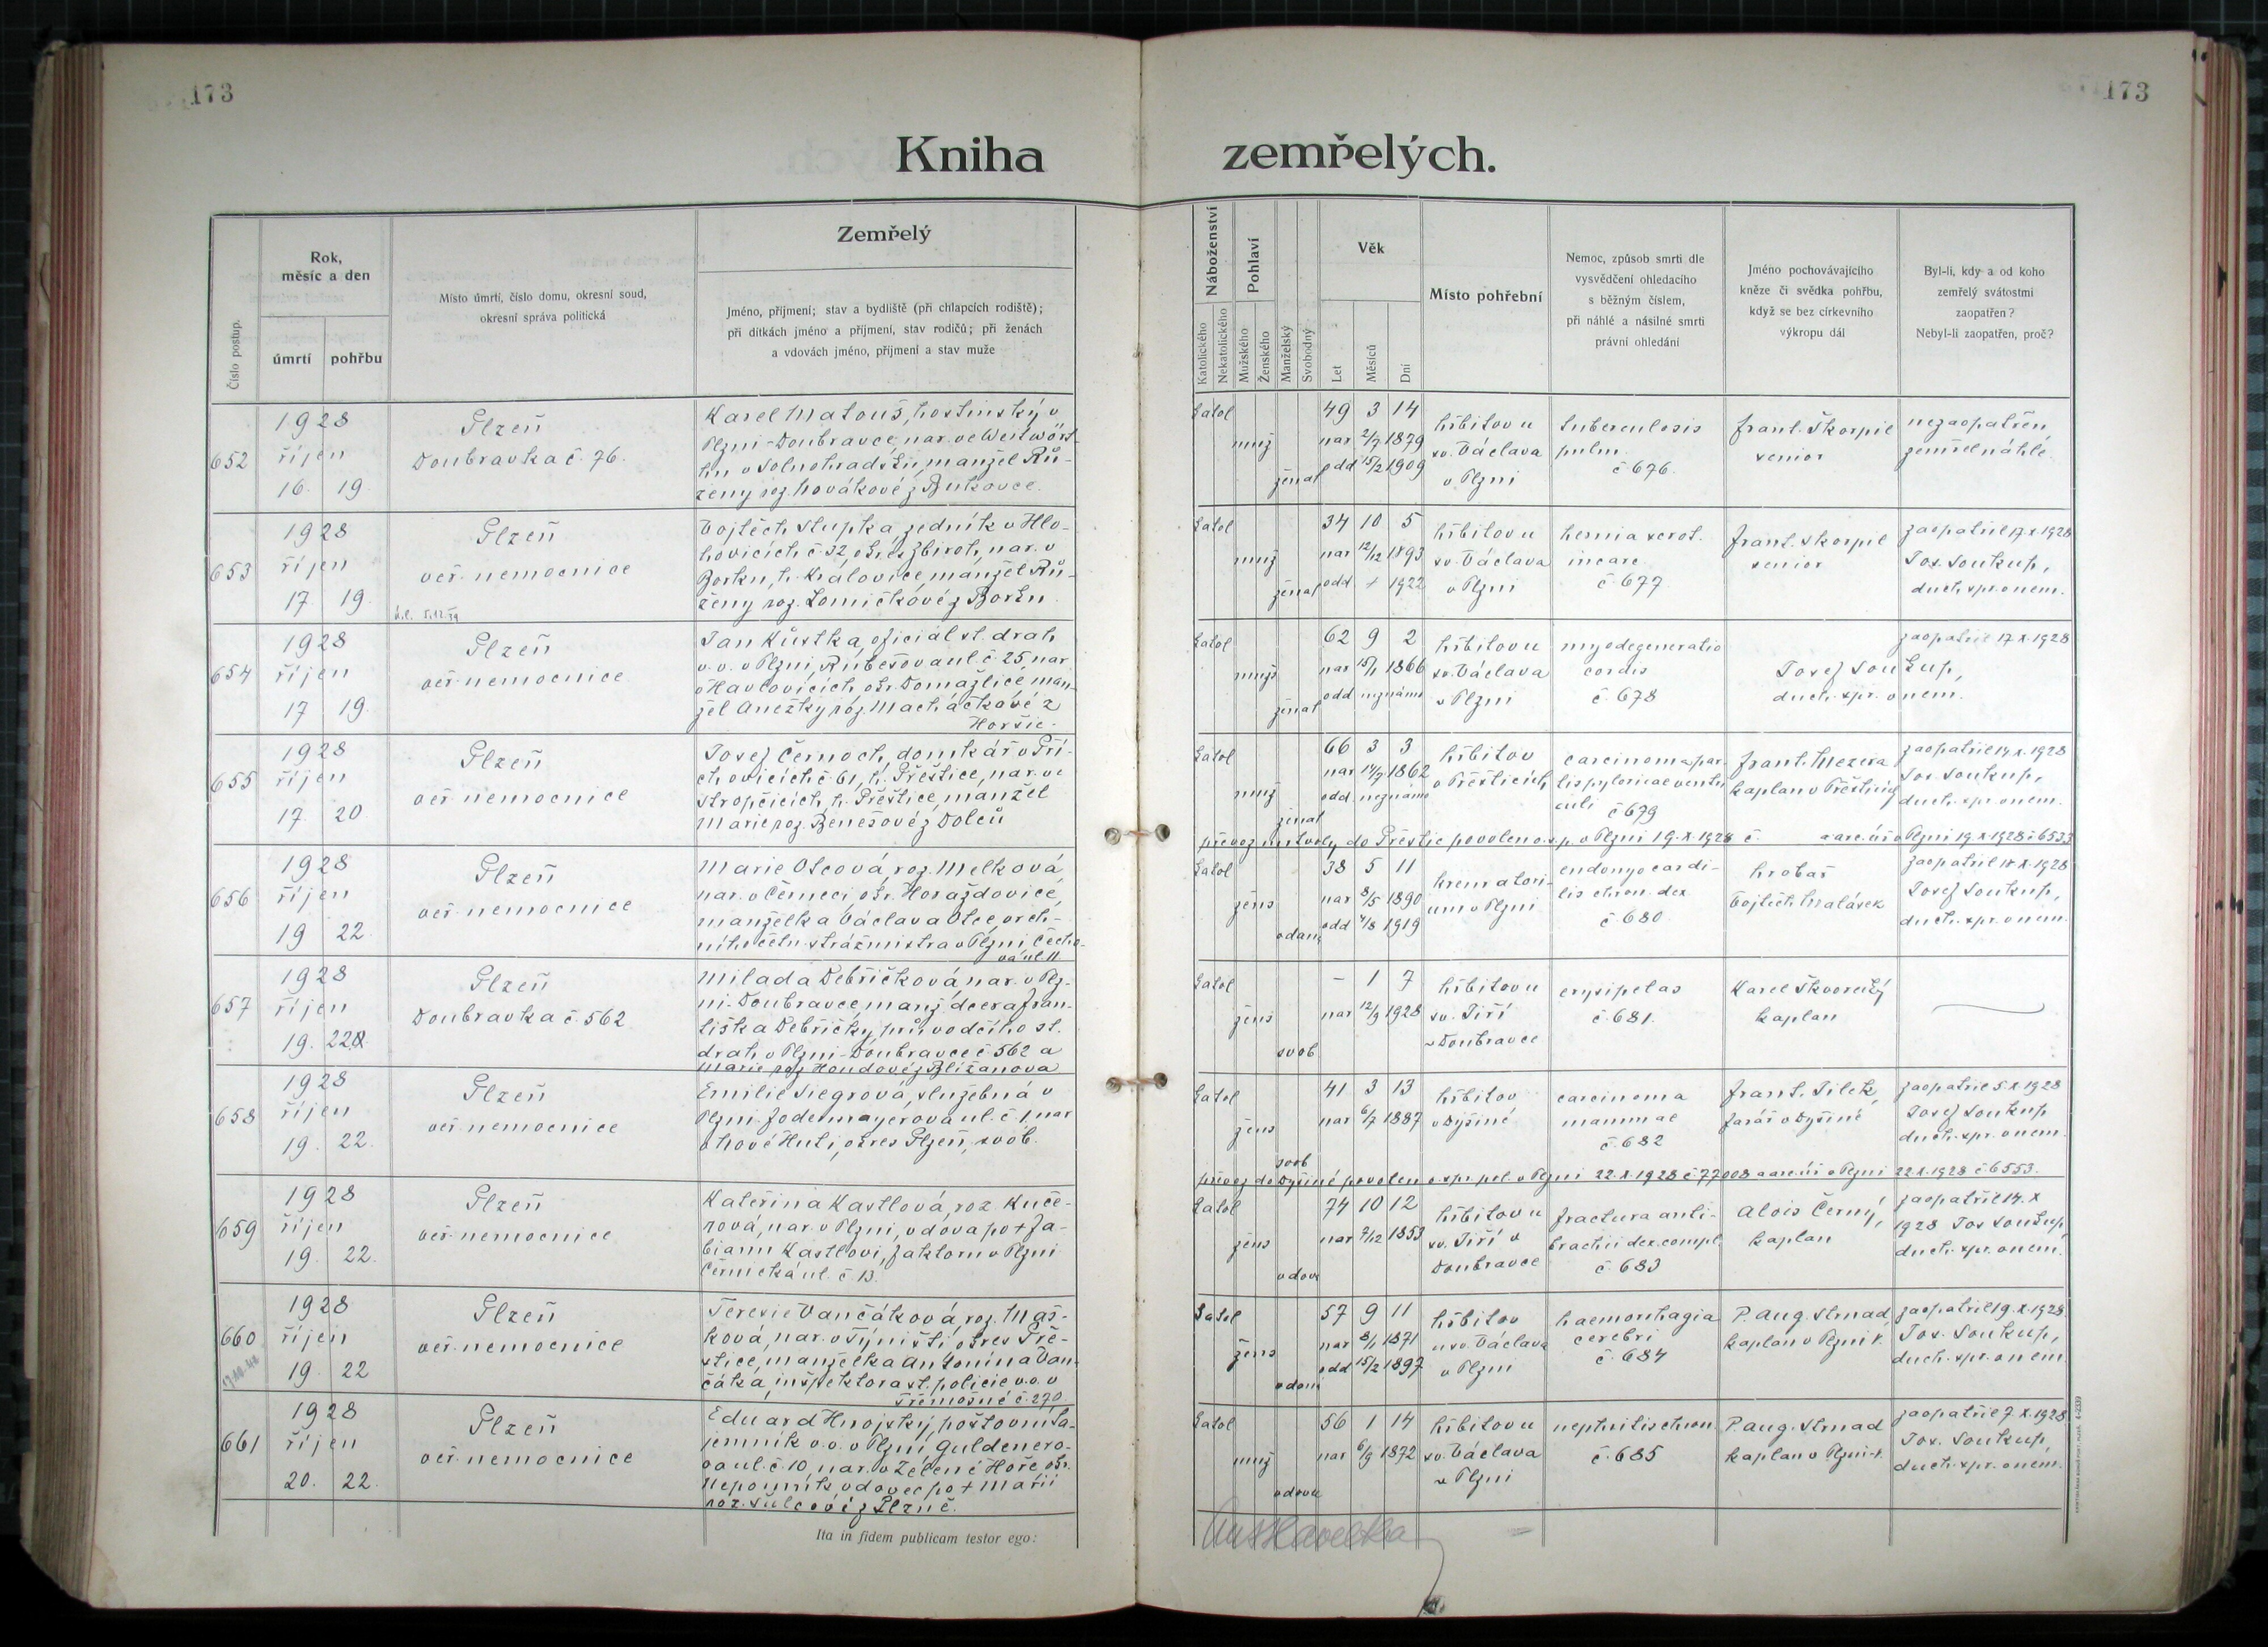 173
173
Kniha zemřelých.
Číslo postup.
Rok, měsíc a den
úmrtí
pohřbu
Místo úmrtí, číslo domu, okresní soud,
okresní správa politická
Zemřelý
Jméno, příjmení; stav a bydliště (při chlapcích rodiště);
při dítkách jméno a příjmení, stav rodičů; při ženách
a vdovách jméno, příjmení a stav muže
Náboženství
Katolického
Nekatolického
Pohlaví
Mužského
Ženského
Manželský
Svobodný
Věk
Let
Měsíců
Dní
Místo pohřební
Nemoc, způsob smrti dle
vysvědčení ohledacího
s běžným číslem,
při náhlé a násilné smrti
právní ohledání
Jméno pochovávajícího
kněze či svědka pohřbu,
když se bez církevního
výkropu dál
Byl-li, kdy a od koho
zemřelý svátostmi
zaopatřen?
Nebyl-li zaopatřen, proč?
652
1928
říjen
16. 19.
Plzeň
Doubravka č. 76.
Karel Matouš, hostinský v
Plzni-Doubravce, nar. ve
v Solnohradsku, manžel Rů-
ženy roz. Novákové z Bukovce.
katol
muž
ženat
49 3 14
nar 2/7 1879
odd 15/2 1909
hřbitov u
sv. Václava
v Plzni
tuberculosis
pulm.
č 676.
Frant. Škorpil
senior
nezaopatřen,
zemřel náhle.
653
1928
říjen
17. 19.
Plzeň
veř. nemocnice
Vojtěch Slupka, zedník v Hlo-
hovicích č. 32, okres Zbiroh, nar. v
Borku, h. Kralovice, manžel Rů-
ženy roz. Lomičkové z Borku.
katol
muž
ženat
34 10 5
nar 12/12 1893
odd 1922
hřbitov u
sv. Václava
v Plzni
hernia scrot.
incarc.
č. 677
Frant. Škorpil
senior
zaopatřil 17.X.1928
Jos. Soukup,
duch. spr. v nem.
654
1928
říjen
17 19.
Plzeň
veř. nemocnice
Jan Kůstka, oficiál st. drah
v. v. v Plzni, Rubešova ul. č. 25, nar.
v Havlovicích, okr. Domažlice, man-
žel Anežky roz. Macháčkové z
Horšic.
katol
muž
ženat
62 9 2
nar 15/1 1866
odd neznámo
hřbitov u
sv. Václava
v Plzni
myodegeneratio
cordis
č. 678
zaopatřil 17.X.1928
Josef Soukup,
duch. spr. v nem.
655
1928
říjen
17. 20.
Plzeň
veř. nemocnice
Josef Černoch, domkář v Při-
chovicích č. 61, h. Přeštice, nar. ve
Stropčicích, h. Přeštice, manžel
Marie roz. Benešové z Dolců
katol
muž
ženat
66 3 3
nar 14/7 1862
odd. neznámo
hřbitov
v Přešticích
carcinoma par-
tis pyloricae ventri
culi
č 679
Frant. Mezera
kaplan v Přešticích
zaopatřil 14.X.1928
Jos. Soukup,
duch. spr. v nem.
převoz mrtvoly do Přeštic povolen o.s.p. v Plzni 19.X.1928 č. a arc. úř. v Plzni 19.X.1928 č 6533
656
1928
říjen
19 22.
Plzeň
veř. nemocnice
Marie Otcová, roz. Melková,
nar. v Čėrneci, okr. Horažďovice,
manželka Václava Otce, vrch-
ního četn. strážmistra v Plzni
katol
žens
vdaná
38 5 11
nar 8/5 1890
odd 4/8 1919
krematori-
um v Plzni
endomyocardi-
tis chron. dex
č. 680.
hrobař
Vojtěch Matásek
zaopatřil 18.X.1928
Josef Soukup,
duch. spr. v nem.
657
1928
říjen
19. 22.
Plzeň
Doubravka č. 562
Milada Debřičková, nar. v Plz-
ni-Doubravce, manž. dcera Fran-
tiška Debřičky, průvodčího st.
drah v Plzni-Doubravce č 562 a
Marie roz. Houdové z Bližanova
katol
žens
svob.
- 1 7
nar 12/9 1928
hřbitov u
sv. Jiří
v Doubravce
erysipelas
č. 681.
Karel Škvorecký
kaplan
658
1928
říjen
19. 22.
Plzeň
veř. nemocnice
Emilie Siegrová, služebná v
Plzni Jodlmayerova ul. č 1, nar
v Nové Huti, okres Plzeň, svob.
katol
žens
svob
41 3 13
nar 6/7 1887
hřbitov
v Dýšiné
carcinoma
mammae
č. 682
Frant. Jílek,
farář v Dýšině
zaopatřil 5.X.1928
Josef Soukup
duch. spr. v nem.
převoz do Dýšiné povolen o. spr. pol. v Plzni 22.X.1928 č 77008 a arc. úř. v Plzni 22.X.1928 č 6553.
659
1928
říjen
19. 22.
Plzeň
veř. nemocnice
Kateřina Kastlová, roz. Kuče-
rová, nar. v Plzni, vdova po + Fa-
biánu Kastlovi, faktoru v Plzni
ul. č 13.
katol
žens
vdova
74 10 12
nar 7/12 1853
hřbitov u
sv. Jiří v
Doubravce
fractura anti-
brachii dex. compl.
č. 683
Alois Černý,
kaplan
zaopatřil 14.X
1928 Jos Soukup,
duch. spr. v nem.
660
1928
říjen
19. 22
Plzeň
veř. nemocnice
Terezie Vančátková, roz. Maš-
ková, nar. v Týništi, okres Pře-
štice, manželka Antonína Van-
čáta, inspektora st. policie v.v. v
Třemošné č. 270.
katol
žens
vdaná
57 9 11
nar 8/1 1871
odd 15/2 1897
hřbitov
u sv. Václava
v Plzni
haemorrhagia
cerebri
č. 684
P. Aug. Strnad,
kaplan v Plzni
zaopatřil 19.X.1928
Jos. Soukup,
duch. spr. v nem.
661
1928
říjen
20. 22.
Plzeň
veř. nemocnice
Eduard Hnojský, poštovní ta-
jemník v.v. v Plzni Guldenero-
va ul. č 10, nar. v Zelené Hoře, okr.
Nepomuk, vdovec po + Marii
roz. Šulcové z Plzně.
katol
muž
vdovec
56 1 14
nar 6/9 1872
hřbitov u
sv. Václava
v Plzni
nephritis chron.
č. 685
P. Aug. Strnad
kaplan v Plzni
zaopatřil 7.X.1928
Jos. Soukup,
duch. spr. v nem.
Ita in fidem publicam testor ego: